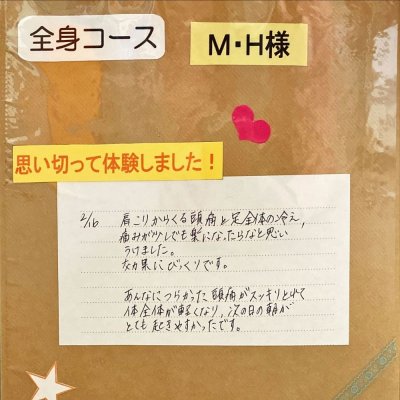 全身コース
M・H様
思い切って体験しました！
2/16 肩こりからくる頭痛と足全体の冷え、
痛みが少しでも楽になったらなと思い
うけました。
効果にびっくりです。
あんなにつらかった頭痛がスッキリとれて
体全体が軽くなり、次の日の朝が
とても起きやすかったです。